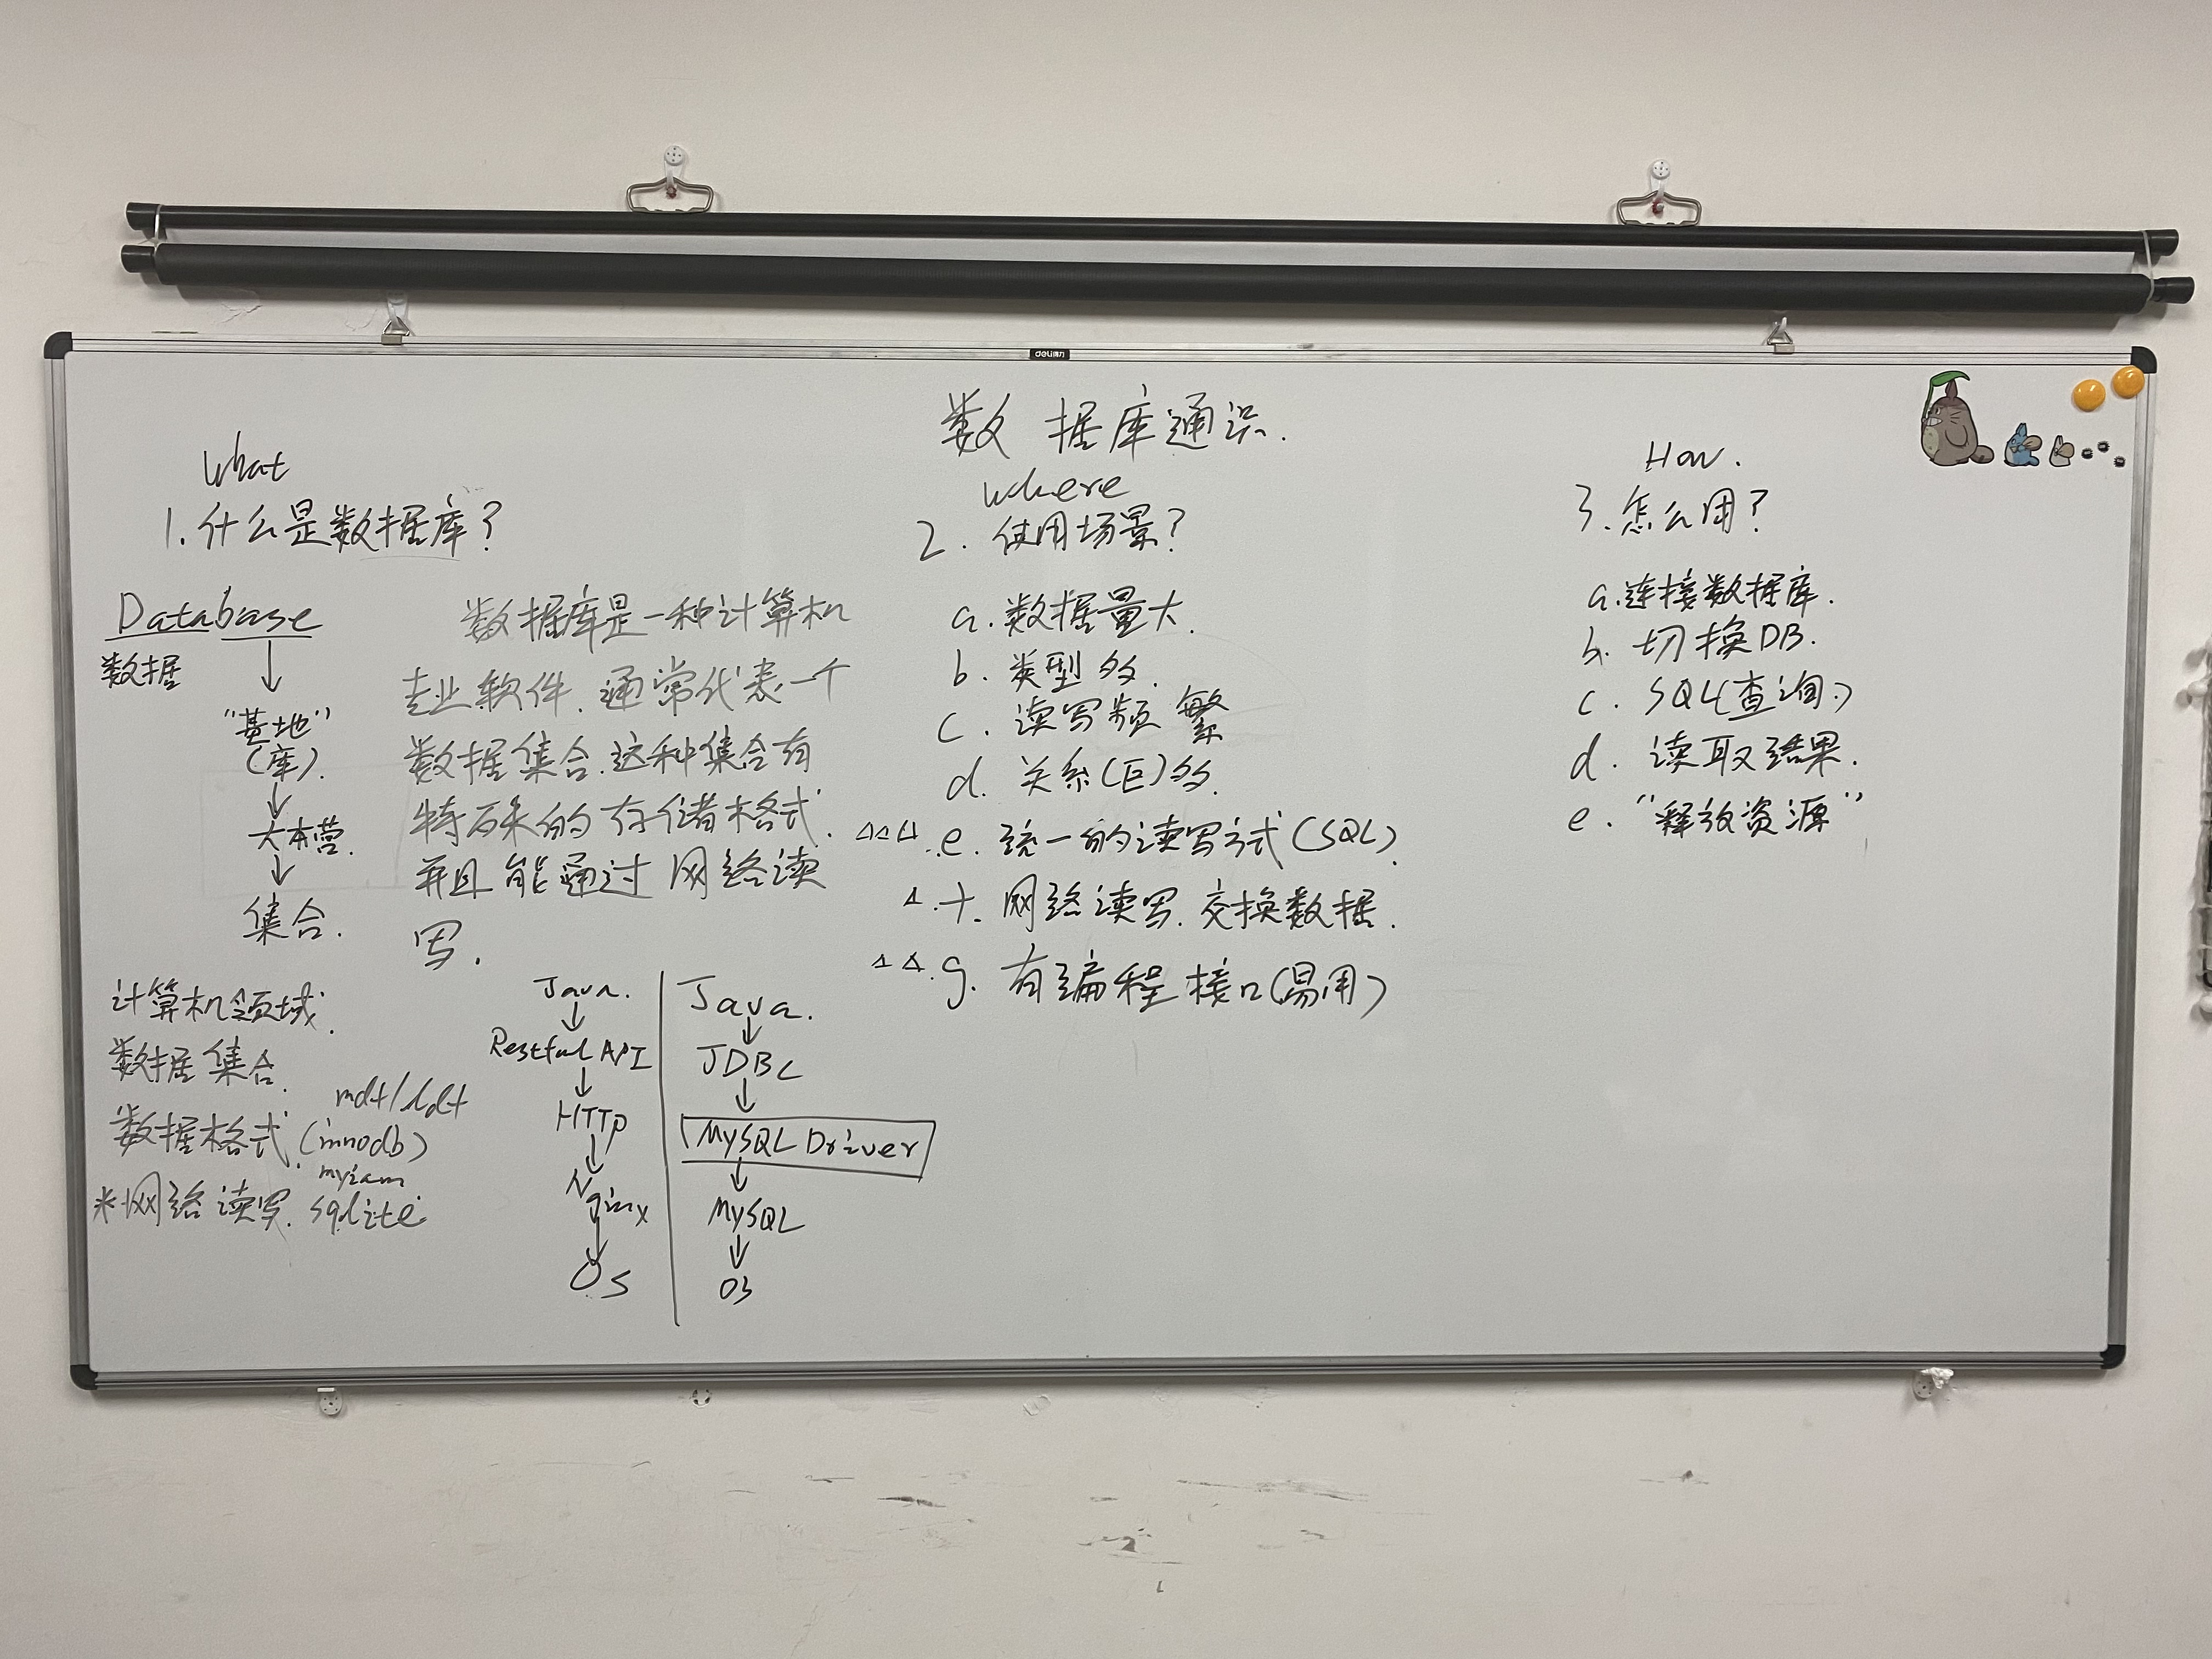 deli得力
数据库通识.
What
1.什么是数据库?
Database
数据
"基地"
(库).
大本营.
集合.
数据库是一种计算机
专业软件.通常代表一个
数据集合.这种集合有
特殊的存储格式.
并且能通过网络读
写.
计算机领域.
数据集合.
数据格式.(innodb)
myisam
*网络读写. sqlite
Java.
Restful API
HTTP
Nginx
OS
Java.
JDBC
MySQL Driver
MySQL
OS
where
2. 使用场景?
a. 数据量大.
b. 类型多.
c. 读写频繁
d. 关系(E)多.
△△△.e. 统一的读写方式(SQL).
△.f. 网络读写.交换数据.
△△.g. 有编程接口(易用)
How.
3.怎么用?
a.连接数据库.
b. 切换DB.
c. SQL(查询)
d. 读取结果.
e. "释放资源"